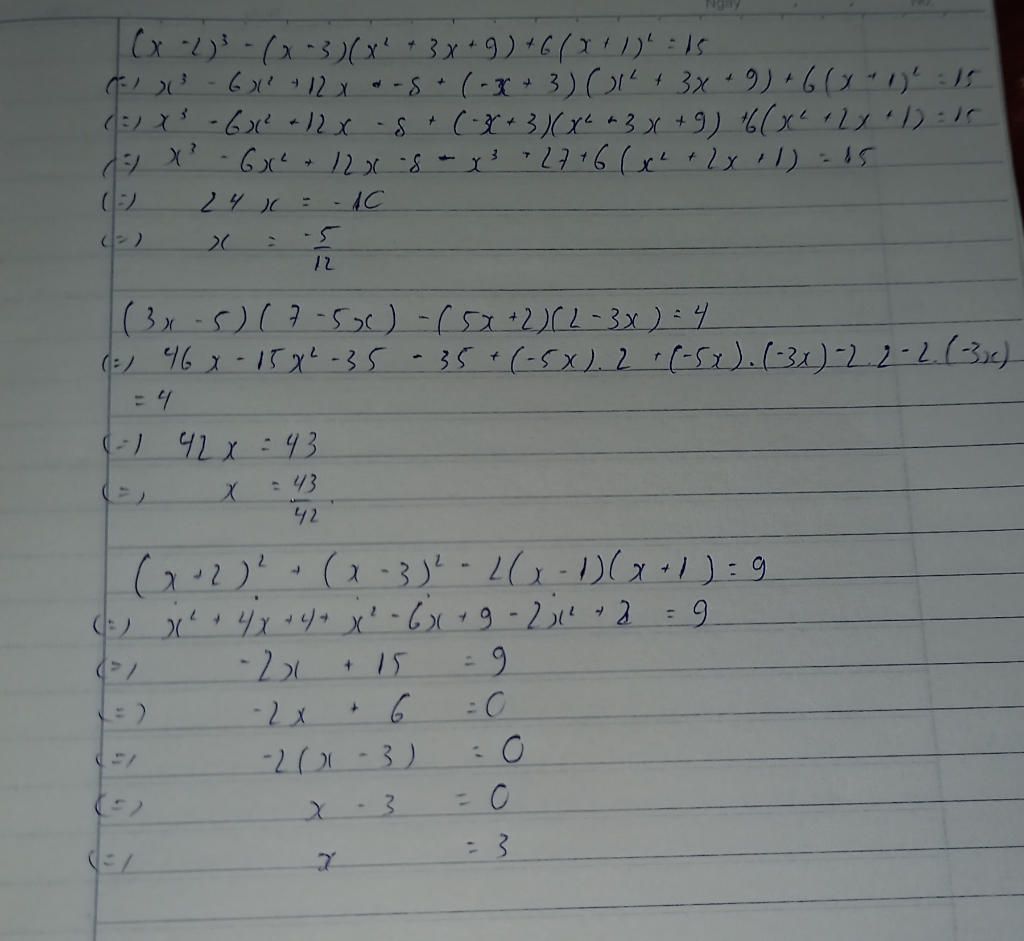 Ngày No.
(x - 2)³ - (x - 3)(x² + 3x + 9) + 6(x + 1)² = 15
(=) x³ - 6x² + 12x - 8 + (-x + 3)(x² + 3x + 9) + 6(x + 1)² = 15
(=) x³ - 6x² + 12x - 8 + (-x + 3)(x² + 3x + 9) + 6(x² + 2x + 1) = 15
(=) x³ - 6x² + 12x - 8 - x³ + 27 + 6(x² + 2x + 1) = 15
(=) 24x = -10
(=) x = -5/12
(3x - 5)(7 - 5x) - (5x + 2)(2 - 3x) = 4
(=) 46x - 15x² - 35 - 35 + (-5x).2 + (-5x).(-3x) - 2.2 - 2.(-3x)
= 4
(=) 42x = 43
(=) x = 43/42.
(x + 2)² + (x - 3)² - 2(x - 1)(x + 1) = 9
(=) x² + 4x + 4 + x² - 6x + 9 - 2x² + 2 = 9
(=) -2x + 15 = 9
(=) -2x + 6 = 0
(=) -2(x - 3) = 0
(=) x - 3 = 0
(=) x = 3